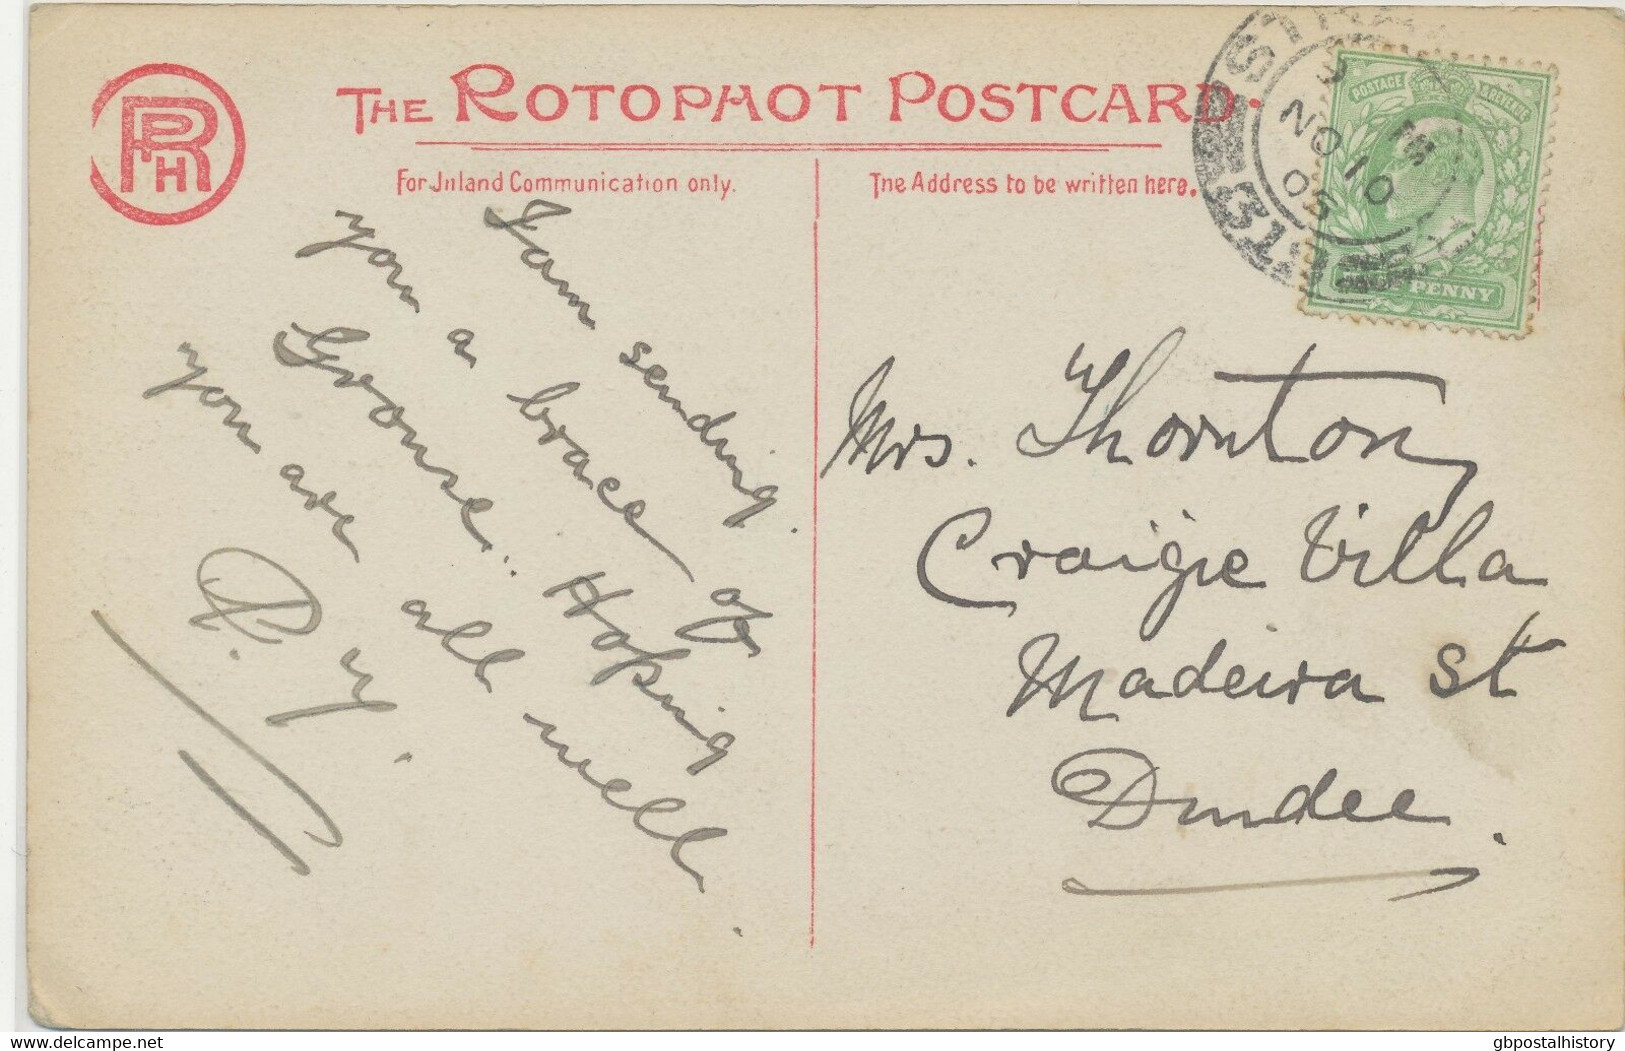 RPH
THE ROTOPHOT POSTCARD.
For Inland Communication only.
The Address to be written here.
I am sending
you a brace of
Grouse. Hoping
you are all well.
POSTAGE & REVENUE
HALF PENNY
NO 10
05
Mrs. Thornton
Craigie Villa
Madeira St
Dundee.
delcampe.net
gbpostalhistory